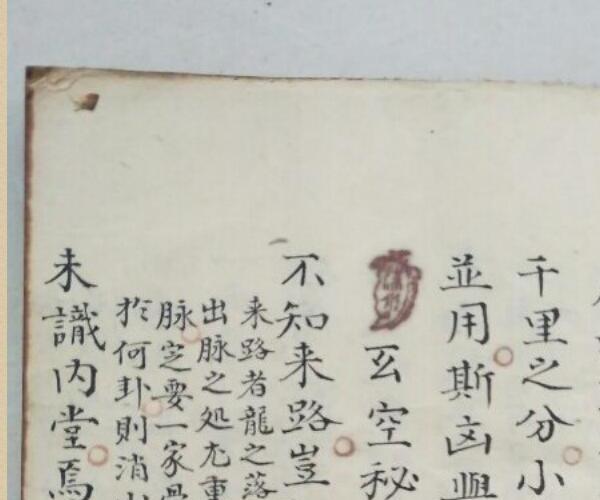 千里之分小
並用斯凶與
玄空秘
不知来路豈
来路者龍之落
出脉之処尤重
脉定要一家骨
扵何卦則消
未識内堂焉